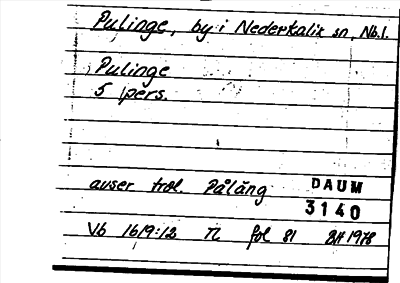 Pulinge, by i Nederkalix sn, Nb.l.
Pulinge
5 pers.
avser trol. Påläng
DAUM
3140
Vb 1619:12 TL fol 81 BH 1978